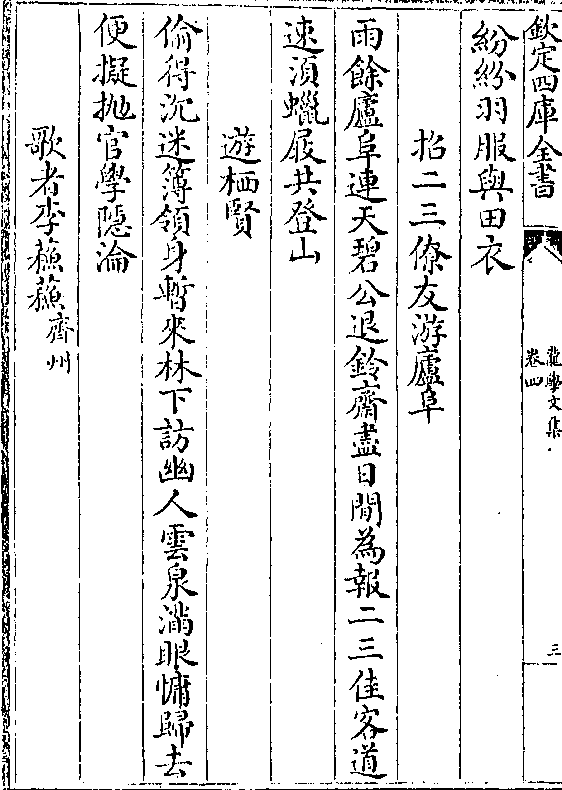 欽定四庫全書
龍學文集
卷四
三
紛紛羽服與田衣
招二三僚友游廬阜
雨餘廬阜連天碧公退鈴齋盡日閒為報二三佳客道
速須蠟屐共登山
遊栖賢
偷得沉迷簿領身暫來林下訪幽人雲泉滿眼慵歸去
便擬抛官學隱淪
歌者李蘓蘓齊州